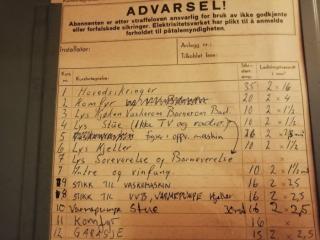 ADVARSEL!
Abonnenten er etter straffeloven ansvarlig for bruk av ikke godkjente
eller forfalskede sikringer. Elektrisitetsverket har plikt til å anmelde
forholdet til påtalemyndigheten.
Installatør: Anlegg nr.:
Tilkoblet fase:
Kurs nr. Kursfortegnelse: Ledningstverrsnitt i mm²
1 Hovedsikringer 35 2 = 16
2 Komfyr 20 2 = 4
3 Lys Kjøkken Vaskerom Barnerom Bad 10 2 = 1½
4 Lys Stue (ikke TV og radio) 10 2 = 1½
5 oppv. maskin 16
6 Lys Kjeller 10 2 = 1½
6 Lys Soveværelse og Barneværelse
7 Entre og vinfang 10 2 = 1½
9 STIKK TIL VASKEMASKIN 16 2 = 2,5
8 STIKK TIL VVB, VARMEPUMPE Kjeller 16 2 x 2,5
10 Varmepumpe Stue 16 2 = 2,5
11 15 2
12 GARASJE 16 2 2,5